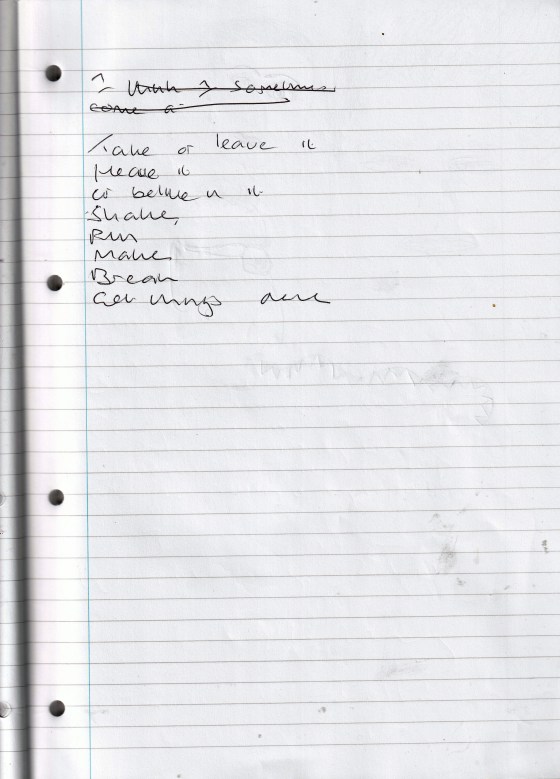 I think I sometimes
come a
Take or leave it
it
or it
Shake,
Run
Make
Break
Get things done